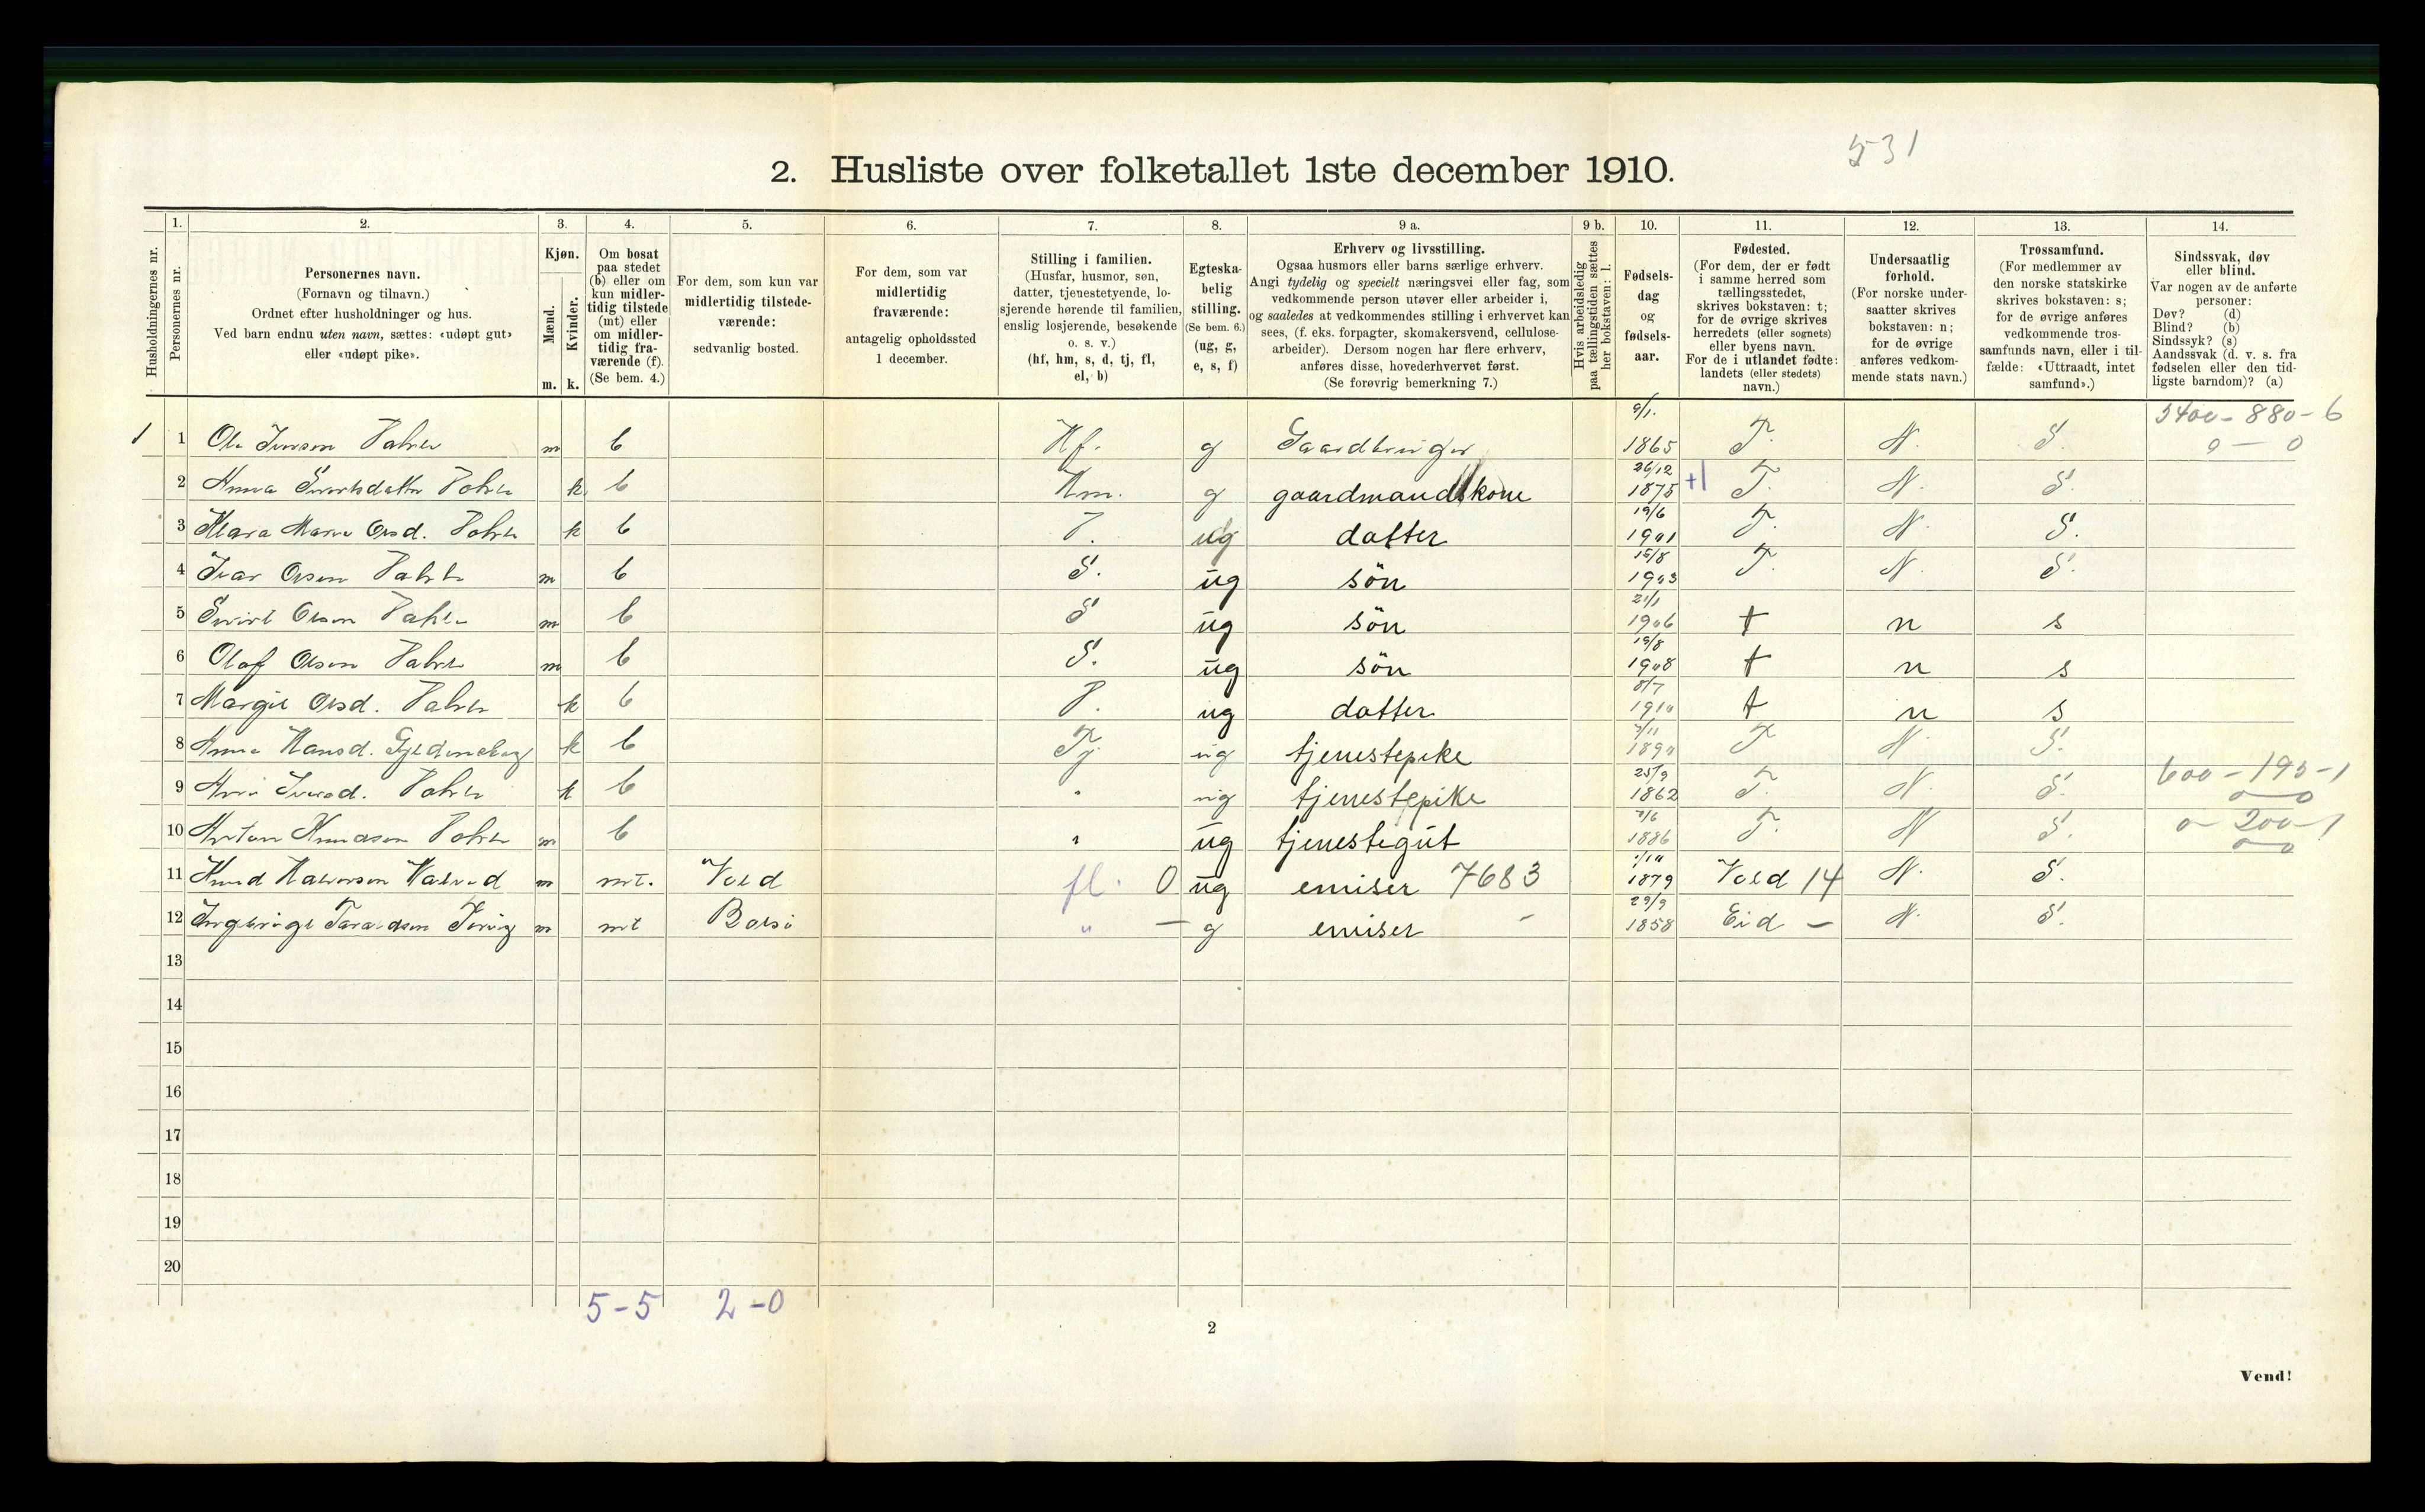 531
2. Husliste over folketallet 1ste december 1910.
1. 2. 3. 4. 5. 6. 7. 8. 9 a. 9 b. 10. 11. 12. 13. 14.
Husholdningernes nr.
Personernes nr.
Personernes navn.
(Fornavn og tilnavn.)
Ordnet efter husholdninger og hus.
Ved barn endnu uten navn, sættes: «udøpt gut»
eller «udøpt pike».
Kjøn.
Mænd.
Kvinder.
m. k.
Om bosat
paa stedet
(b) eller om
kun midler-
tidig tilstede
(mt) eller
om midler-
tidig fra-
værende (f).
(Se bem. 4.)
For dem, som kun var
midlertidig tilstede-
værende:
sedvanlig bosted.
For dem, som var
midlertidig
fraværende:
antagelig opholdssted
1 december.
Stilling i familien.
(Husfar, husmor, søn,
datter, tjenestetyende, lo-
sjerende hørende til familien,
enslig losjerende, besøkende
o. s. v.)
(hf, hm, s, d, tj, fl,
el, b)
Egteska-
belig
stilling.
(Se bem. 6.)
(ug, g,
e, s, f)
Erhverv og livsstilling.
Ogsaa husmors eller barns særlige erhverv.
Angi tydelig og specielt næringsvei eller fag, som
vedkommende person utøver eller arbeider i,
og saaledes at vedkommendes stilling i erhvervet kan
sees, (f. eks. forpagter, skomakersvend, cellulose-
arbeider). Dersom nogen har flere erhverv,
anføres disse, hovederhvervet først.
(Se forøvrig bemerkning 7.)
Hvis arbeidsledig
paa tællingstiden sættes
her bokstaven: l.
Fødsels-
dag
og
fødsels-
aar.
Fødested.
(For dem, der er født
i samme herred som
tællingsstedet,
skrives bokstaven: t;
for de øvrige skrives
herredets (eller sognets)
eller byens navn.
For de i utlandet fødte:
landets (eller stedets)
navn.)
Undersaatlig
forhold.
(For norske under-
saatter skrives
bokstaven: n;
for de øvrige
anføres vedkom-
mende stats navn.)
Trossamfund.
(For medlemmer av
den norske statskirke
skrives bokstaven: s;
for de øvrige anføres
vedkommende tros-
samfunds navn, eller i til-
fælde: «Uttraadt, intet
samfund».)
Sindssvak, døv
eller blind.
Var nogen av de anførte
personer:
Døv? (d)
Blind? (b)
Sindssyk? (s)
Aandssvak (d. v. s. fra
fødselen eller den tid-
ligste barndom)? (a)
5400-880-6
1 1 m b Hf. g Gaardbruger 1865 T. N. S. 0-0
2 Anna k. b Hm. g gaardmandskone 26/12 1875 +1 T. N. S.
3 Klara k b ug datter 19/6 1901 T. N. S.
4 Ivar Olsen m b S. ug sön 15/8 1903 T. N. S.
5 Olsen m b S ug sön 21/1 1906 t n s
6 Olaf Olsen m b S. ug sön 19/8 1908 t n s
7 Margit Olsd. k b ug datter 8/7 1910 t n s
8 Anna Hansd. k b Tj ug tjenestepike T N S.
9 k b " ug tjenestepike 25/9 1862 T. N. S. 600-190-1
10 Knudsen m b " ug tjenestegut 1886 T. N S. 0-200-1
11 Knud Halvorsen m mt. Vold fl. 0 ug emiser 7683 1879 Vold 14 N. S.
12 m mt Bolsö " - g emiser 29/9 1858 Eid - N. S.
13
14
15
16
17
18
19
20
5-5 2-0
2
Vend!